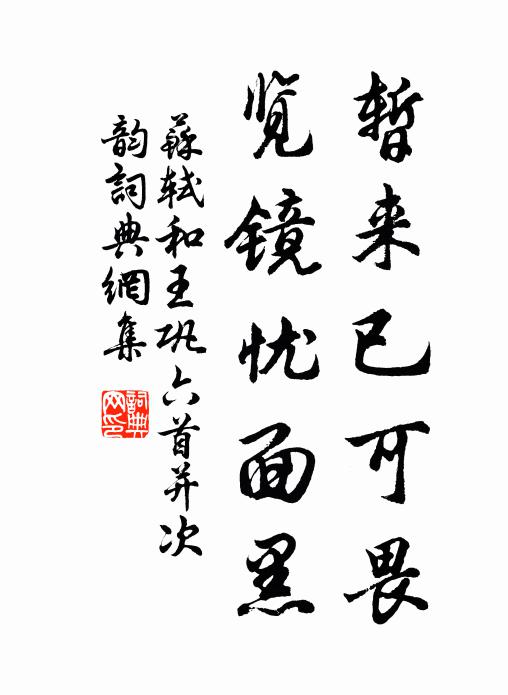 暂来已可畏
览镜忧面黑
蘇轼和王巩六首并次
韵詞典網集
詞典网印